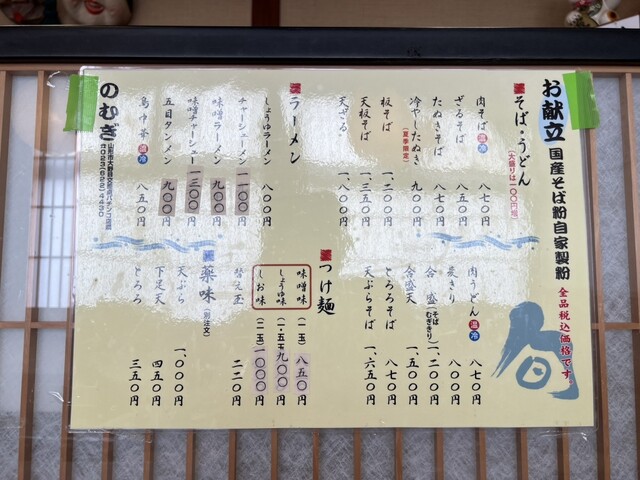 お献立 国産そば粉自家製粉
全品税込価格です。
そば・うどん
(大盛りは一〇〇円増)
肉そば 温 冷 八七〇円
ざるそば 八五〇円
たぬきそば 八七〇円
冷やしたぬき 九〇〇円
(夏季限定)
板そば 一、二〇〇円
天板そば 一、三五〇円
天ざる 一、八〇〇円
肉うどん 温 冷 八七〇円
麦きり 八〇〇円
合盛(そば むぎきり) 一、二〇〇円
合盛天 一、五〇〇円
とろろそば 八七〇円
天ぷらそば 一、六五〇円
ラーメン
しょうゆラーメン 八〇〇円
チャーシューメン 一一〇〇円
味噌ラーメン 九〇〇円
味噌チャーシュー 一三〇〇円
五目タンメン 九〇〇円
鳥中華 温 冷 八五〇円
つけ麺
味噌味 (一玉) 八五〇円
しょうゆ味 (一・五玉) 九〇〇円
しお味 (二玉) 一〇〇〇円
替え玉 二二〇円
薬味(別注文)
天ぷら 一、〇〇〇円
下足天 四五〇円
とろろ 三五〇円
のむぎ
☎023(622)4430